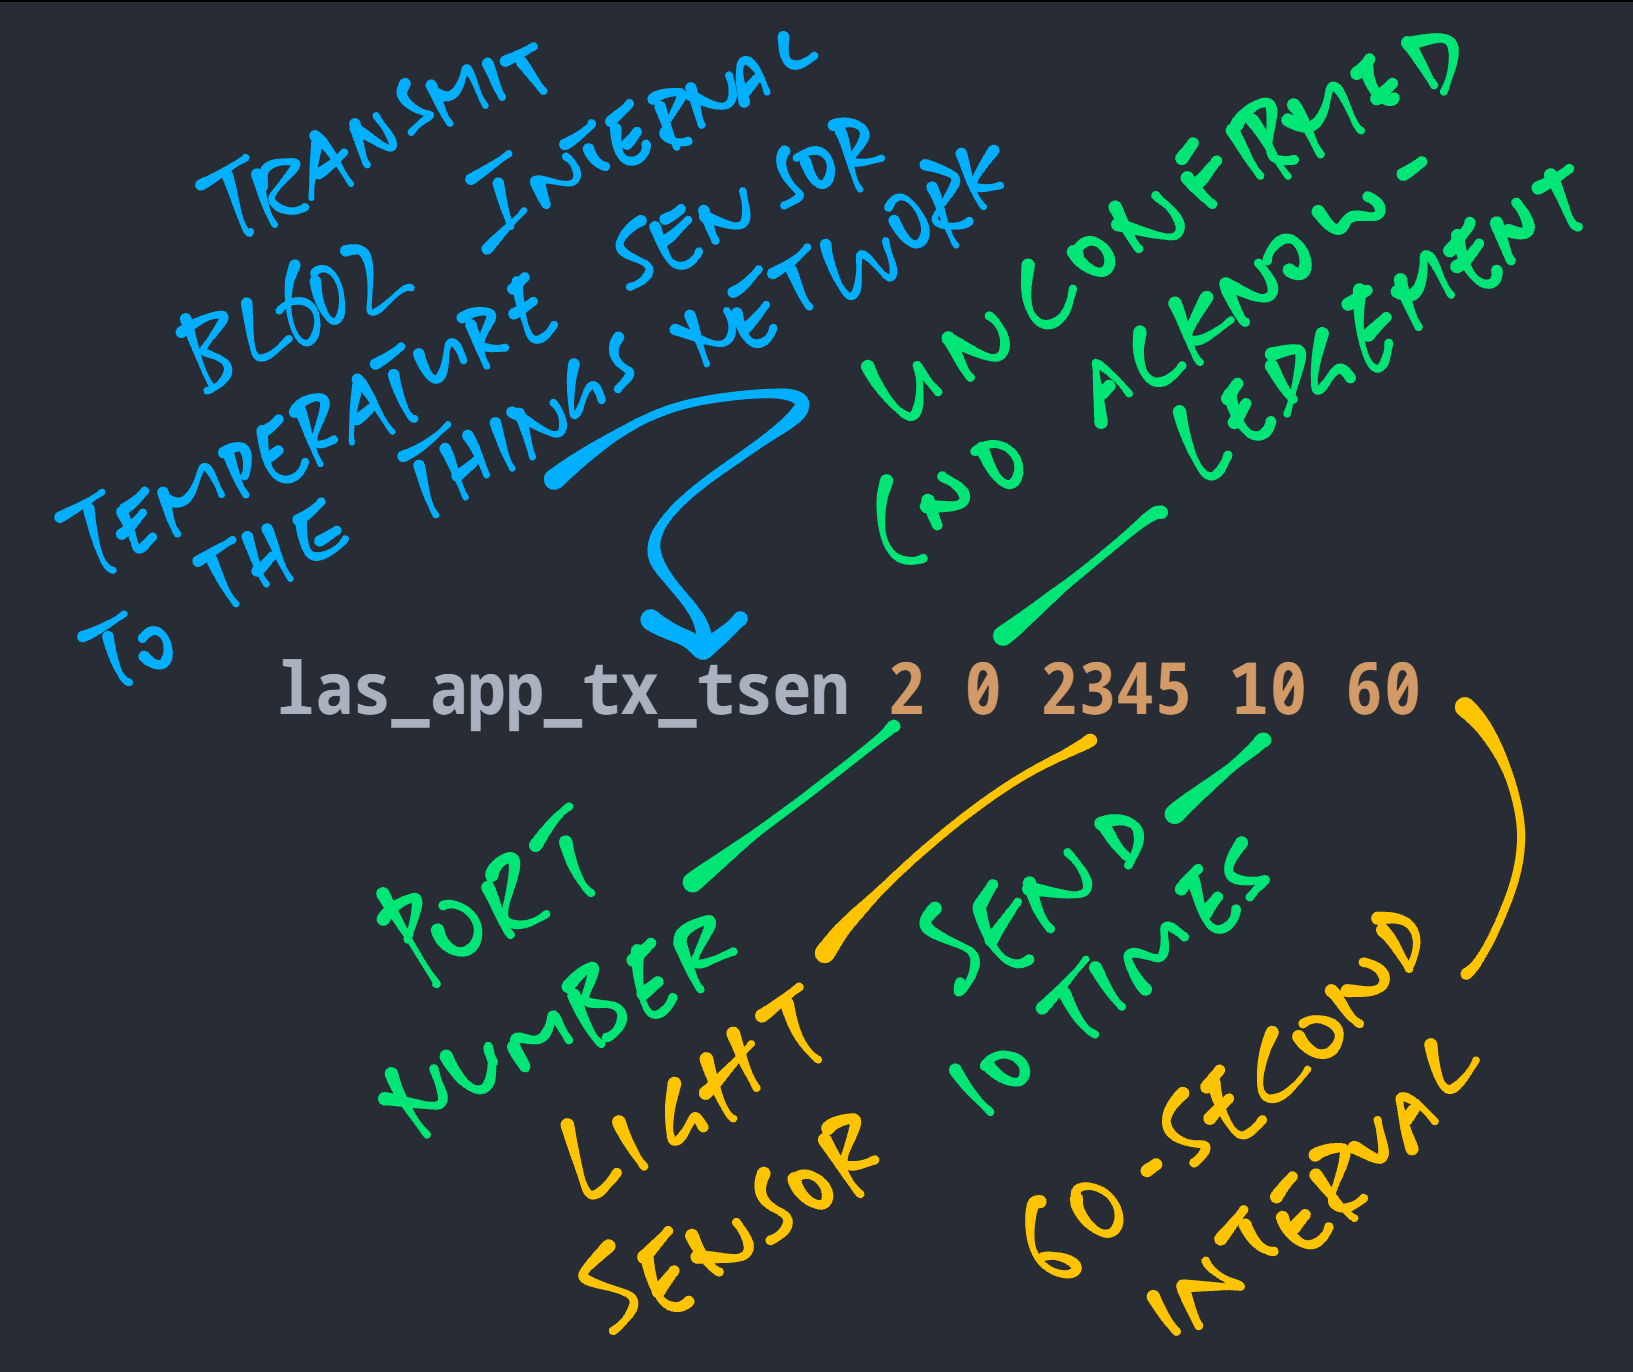 TRANSMIT
BL602 INTERNAL
TEMPERATURE SENSOR
TO THE THINGS NETWORK
UNCONFIRMED
(NO ACKNOW-
LEDGEMENT
las_app_tx_tsen 2 0 2345 10 60
PORT
NUMBER
LIGHT
SENSOR
SEND
10 TIMES
60-SECOND
INTERVAL